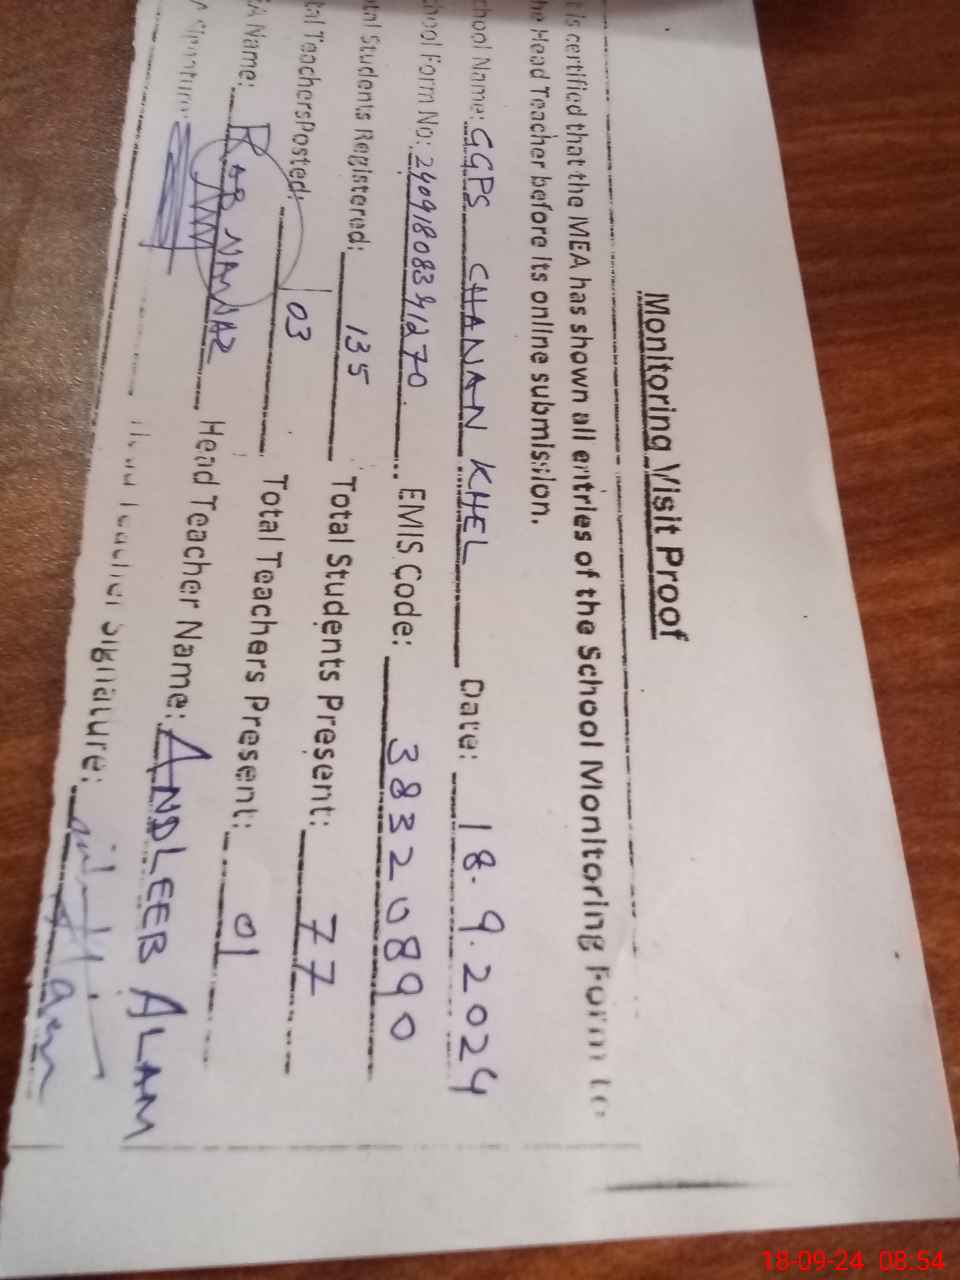 Monitoring Visit Proof
t is certified that the MEA has shown all entries of the School Monitoring Form to
he Head Teacher before its online submission.
chool Name: GGPS CHANAN KHEL Date: 18.9.2024
chool Form No: EMIS Code: 38320890
otal Students Registered: 135 Total Students Present: 77
tal Teachers Posted: 03 Total Teachers Present: 01
EA Name: RAB NAWAZ Head Teacher Name: ANDLEEB ALAM
A Signature: Head Teacher Signature:
18-09-24 08:54